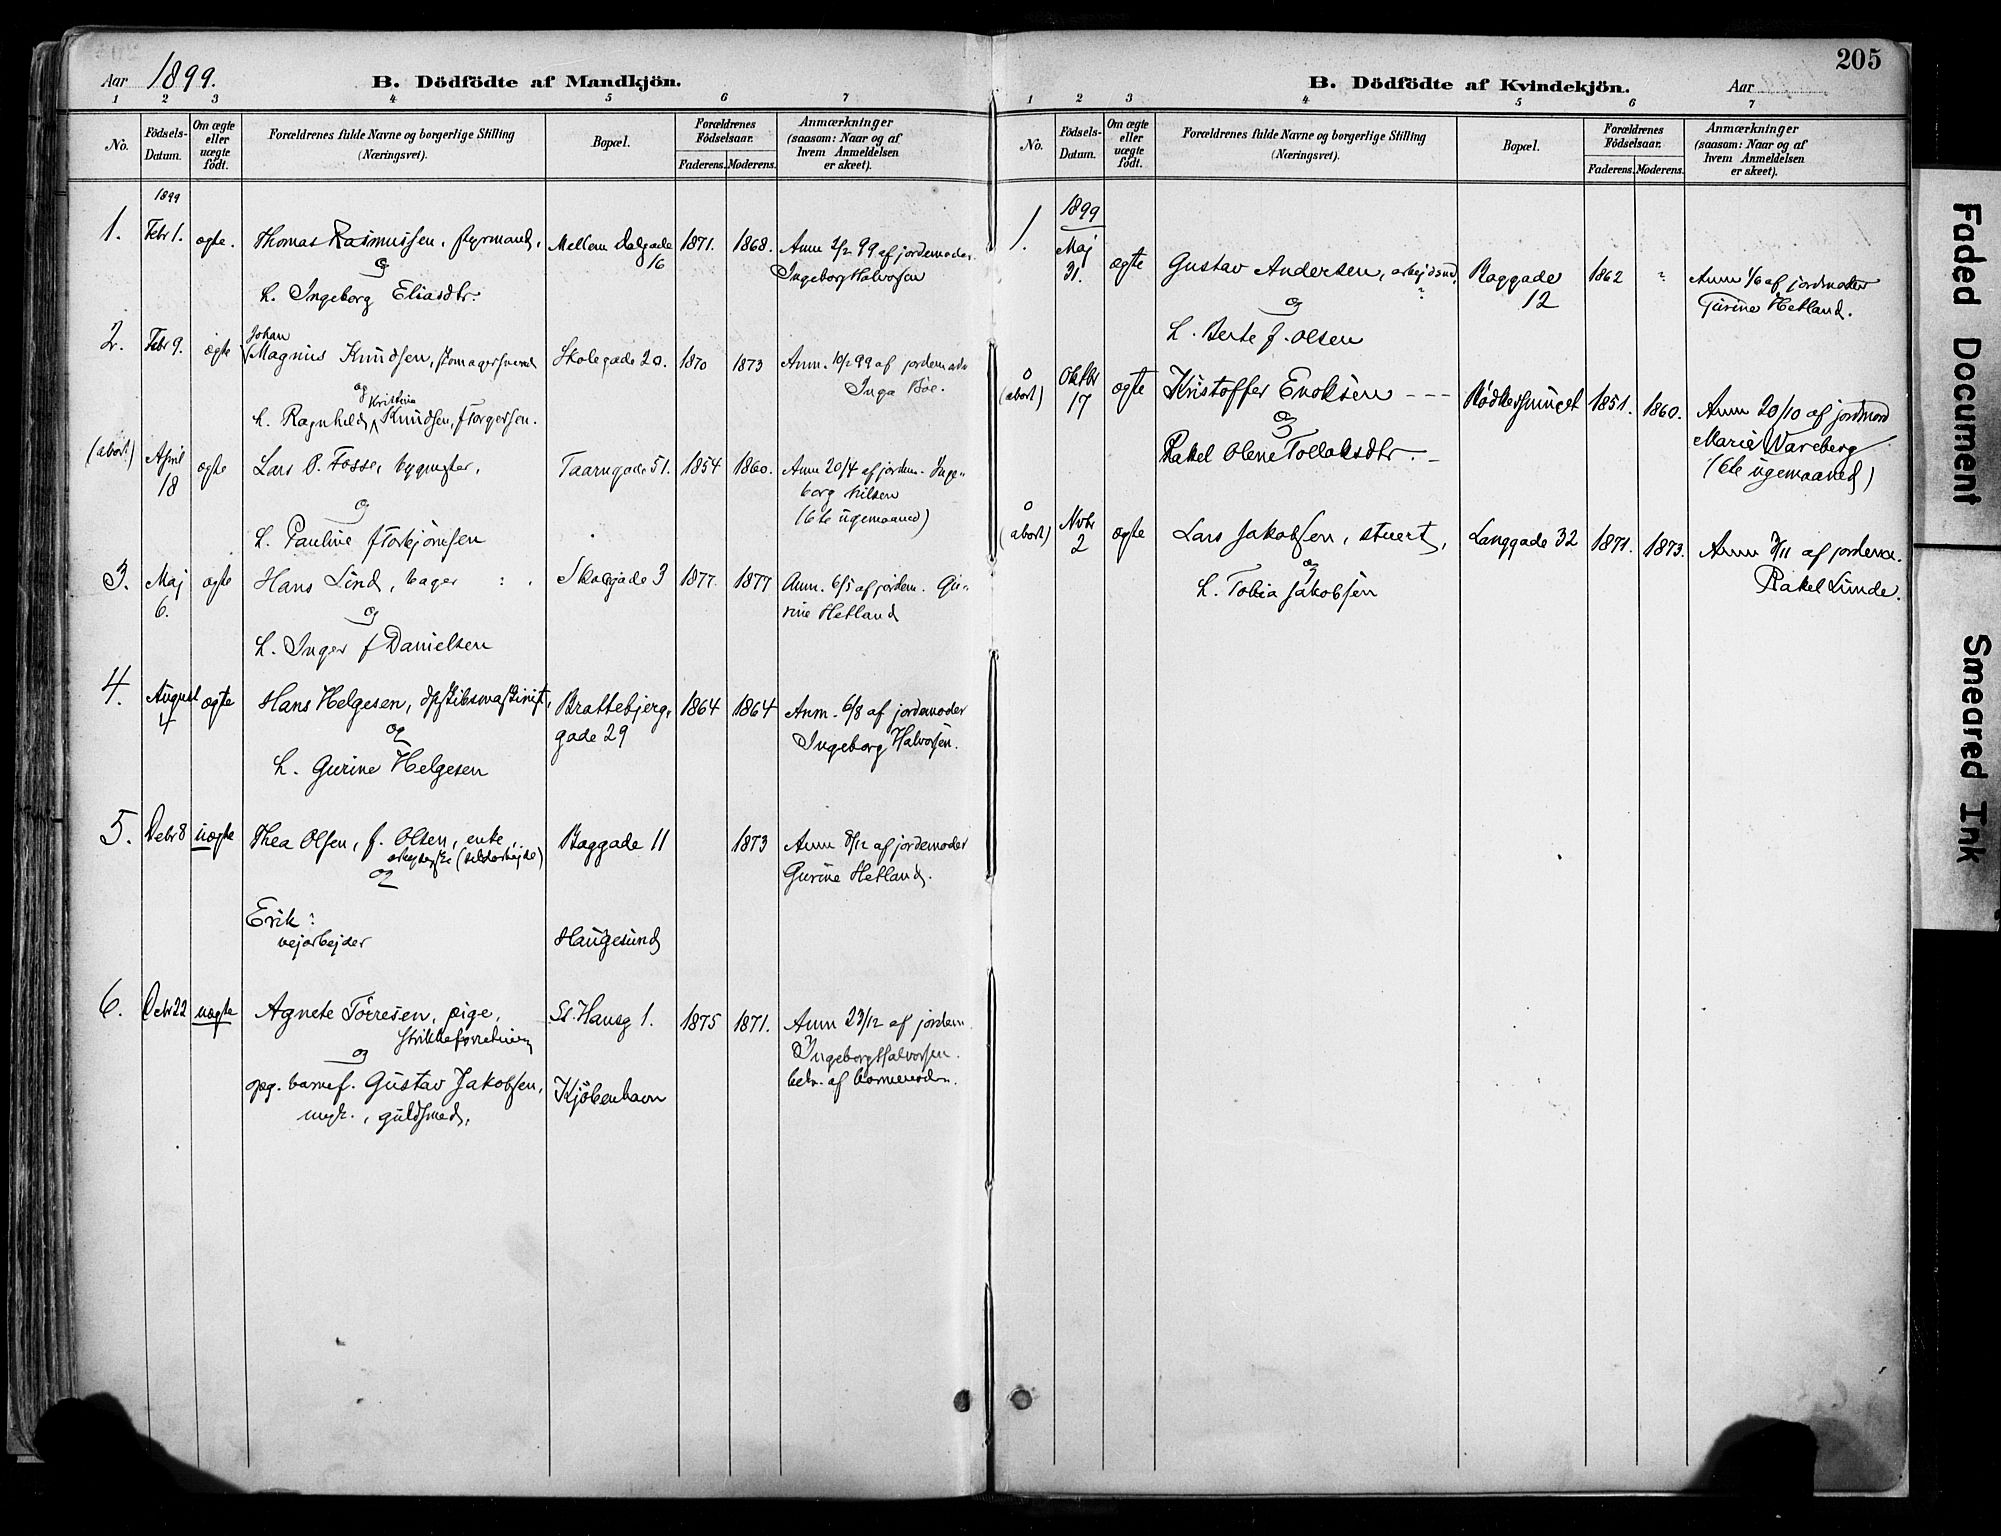 205
Aar 1899.
B. Dödfödte af Mandkjön.
1 2 3 4 5 6 7
No.
Födsels-Datum.
Om ægte eller uægte födt.
Forældrenes fulde Navne og borgerlige Stilling (Næringsvei).
Bopæl.
Forældrenes Födselsaar.
Faderens. Moderens.
Anmærkninger (saasom: Naar og af hvem Anmeldelsen er skeet).
1899
1. Febr 1. ægte. Thomas Rasmussen, styrmand, Mellem dalgade 16 1871. 1868. Anm 2/2 99 af jordemoder
og Ingeborg Halvorsen
h. Ingeborg Eliasdtr.
2. Febr 9. ægte Johan Magnus Knudsen, skomagersvend Skolegade 20. 1870 1873 Anm. 10/2 99 af jordem
og Inga Böe.
h. Ragnhild Kristina Knudsen, f Torgersen.
(abort) April 18 ægte Lars P. Fosse, bygmster, Taarngade 51. 1854 1860. Anm 20/4 af jordem. Inge-
og borg Nilsen
h. Pauline f Torbjörnsen (6te ugemaaned)
3. Maj 6. ægte Hans Lind, bager Skolegade 3 1877. 1877 Anm. 6/5 af jordem. Gu-
og rine Hetland
h. Inger f Danielsen
4. August 4 ægte Hans Helgesen, dpskibsmaskinist, Brattebjerg- 1864 1864 Anm. 6/8 af jordemoder
og gade 29 Ingeborg Halvorsen.
h. Gurine Helgesen
5. Debr 8 uægte Thea Olsen, f. Olsen, enke, Baggade 11 1873 Anm 8/12 af jordemoder
arbejderske (sildarbejde) Gurine Hetland.
og
Erik:
vejarbejder Haugesund
6. Debr 22 uægte Agnete Törresen, pige, St. Hansg 1. 1875 1871. Anm 23/12 af jordem.
strikkeforretning Ingeborg Halvorsen.
og
opg. barnef. Gustav Jakobsen, Kjöbenhavn
ungk., guldsmed,
B. Dödfödte af Kvindekjön.
Aar
1 2 3 4 5 6 7
No.
Födsels-Datum.
Om ægte eller uægte födt.
Forældrenes fulde Navne og borgerlige Stilling (Næringsvei).
Bopæl.
Forældrenes Födselsaar.
Faderens. Moderens.
Anmærkninger (saasom: Naar og af hvem Anmeldelsen er skeet).
1899
1. Maj 31. ægte Gustav Andersen, arbejdsmd, Baggade 12 1862 ? Anm 1/6 af jordmoder
og Gurine Hetland.
h. Berte f. Olsen
0 (abort) Oktbr 17 ægte Kristoffer Enoksen - - - Rödkersmuget 1851. 1860. Anm 20/10 af jordmod
og Marie Vareberg
Rakel Olene Tollaksdtr. - (6te ugemaaned)
0 (abort) Novbr 2 ægte Lars Jakobsen, stuert, Langgade 32 1871. 1873. Anm 3/11 af jordem.
og Rakel Lunde.
h. Tobia Jakobsen
Faded Document
Smeared Ink